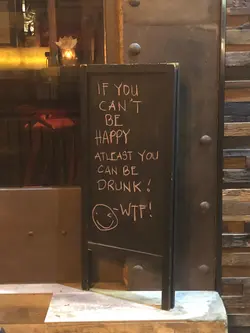 IF YOU
CAN'T
BE
HAPPY
ATLEAST YOU
CAN BE
DRUNK!
-WTF!